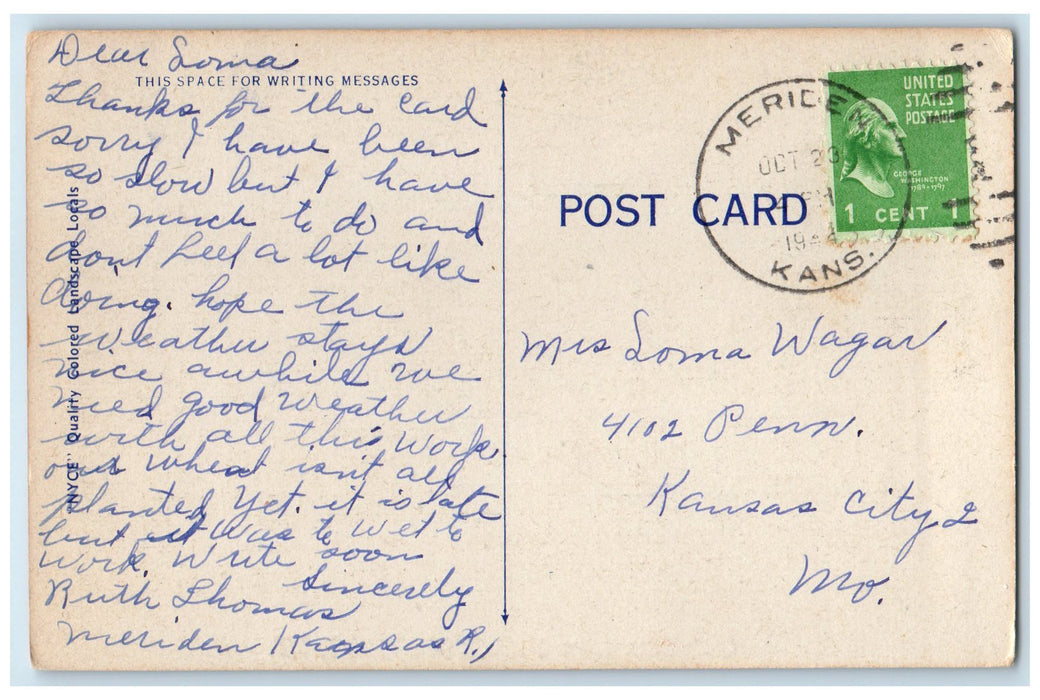 Dear Loma
THIS SPACE FOR WRITING MESSAGES
Thanks for the card
sorry I have been
so slow but I have
so much to do and
don't feel a lot like
doing. hope the
weather stays
nice awhile we
need good weather
with all this work
our wheat isn't all
planted yet. it is late
but it was to wet to
work. Write soon
Sincerely
Ruth Thomas
Meriden Kansas R. 1
"NYCE" Quality Colored Landscape Locals
POST CARD
MERIDEN
OCT 23
KANS.
UNITED
STATES
POSTAGE
GEORGE
WASHINGTON
1789-1797
1 CENT 1
Mrs Loma Wagar
4102 Penn.
Kansas City 2
Mo.